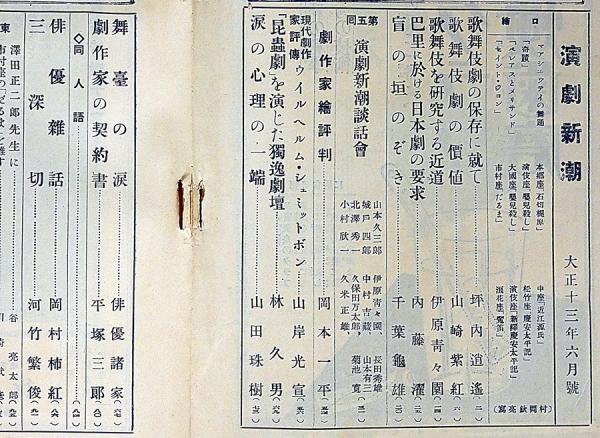 演劇新潮
大正十三年六月號
口繪
マアシエワティの舞踊
「奇蹟」
「ペレアスとメリサンド」
「セイント・ジヨン」
本郷座、石切梶原」
演伎座、嬰兒殺し」
大國座、嬰兒殺し」
市村座、だるま」
中座「近江源氏」
松竹座、慶安太平記」
演伎座「新釋慶安太平記」
浪花座、鴛笛」
歌舞伎劇の保存に就て……坪内逍遙
歌舞伎劇の價値……山崎紫紅
歌舞伎を硏究する近道……伊原靑々園
巴里に於ける日本劇の要求……内藤濯
盲の垣のぞき……千葉龜雄
第五囘
演劇新潮談話會
山本久三郎
城戸四郞
北澤秀一
小村欣一
伊原靑々園、
中村吉藏、
久保田万太郎、
久米正雄、
長田秀雄
山本有三
菊池寬
劇作家繪評判……岡本一平
現代劇作家評傳
ウイルヘルム・シュミットボン……山岸光宣
「昆蟲劇」を演じた獨逸劇壇……林久男
淚の心理の一端……山田珠樹
舞臺の淚……俳優諸家
劇作家の契約書……平塚三郞
◇同人語
俳優雜話……岡村柿紅
三深切……河竹繁俊
澤田正二郎先生に……谷亮太郎